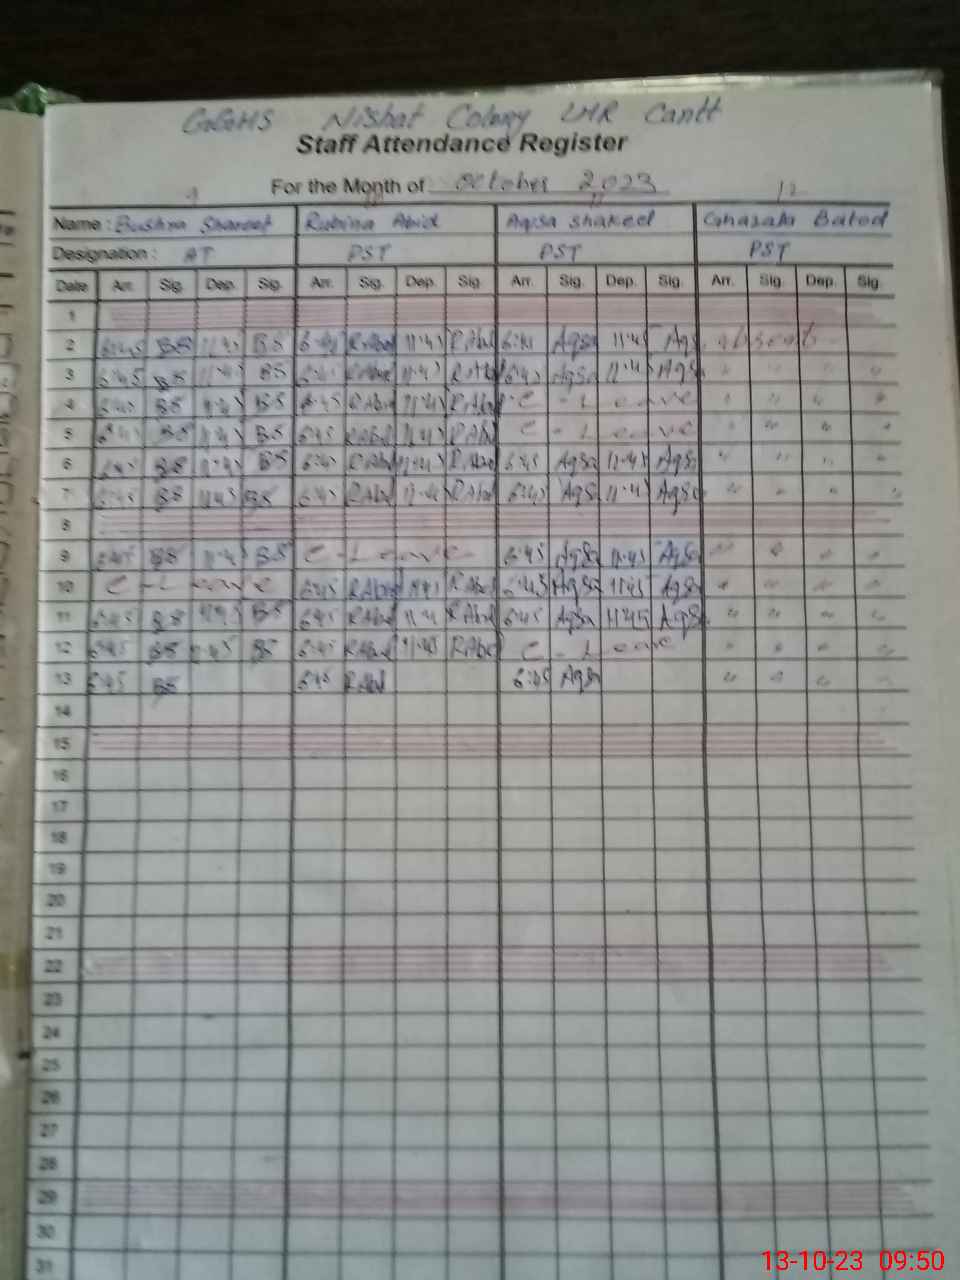 GGHS Nishat Colony LHR Cantt
Staff Attendance Register
For the Month of: October 2023
Name: Bushra Shareef Rubina Abid Aqsa Shakeel Ghazala Batool
Designation: AT PST PST PST
Date Arr. Sig. Dep. Sig. Arr. Sig. Dep. Sig. Arr. Sig. Dep. Sig. Arr. Sig. Dep. Sig.
1
2 6:45 BS 11:45 BS 6:45 RAbid 11:45 RAbid 6:45 Aqsa 11:45 Aqsa absent
3 6:45 BS 11:45 BS 6:45 RAbid 11:45 RAbid 6:45 Aqsa 11:45 Aqsa " " " "
4 6:45 BS 11:45 BS 6:45 RAbid 11:45 RAbid C - Leave " " " "
5 6:45 BS 11:45 BS 6:45 RAbid 11:45 RAbid C - Leave " " " "
6 6:45 BS 11:45 BS 6:45 RAbid 11:45 RAbid 6:45 Aqsa 11:45 Aqsa " " " "
7 6:45 BS 11:45 BS 6:45 RAbid 11:45 RAbid 6:45 Aqsa 11:45 Aqsa " " " "
8
9 6:45 BS 11:45 BS C - Leave 6:45 Aqsa 11:45 Aqsa " " " "
10 C - Leave 6:45 RAbid 11:45 RAbid 6:45 Aqsa 11:45 Aqsa " " " "
11 6:45 BS 11:45 BS 6:45 RAbid 11:45 RAbid 6:45 Aqsa 11:45 Aqsa " " " "
12 6:45 BS 11:45 BS 6:45 RAbid 11:45 RAbid C - Leave " " " "
13 6:45 BS 6:45 RAbid 6:45 Aqsa " " " "
14
15
16
17
18
19
20
21
22
23
24
25
26
27
28
29
30
31
13-10-23 09:50